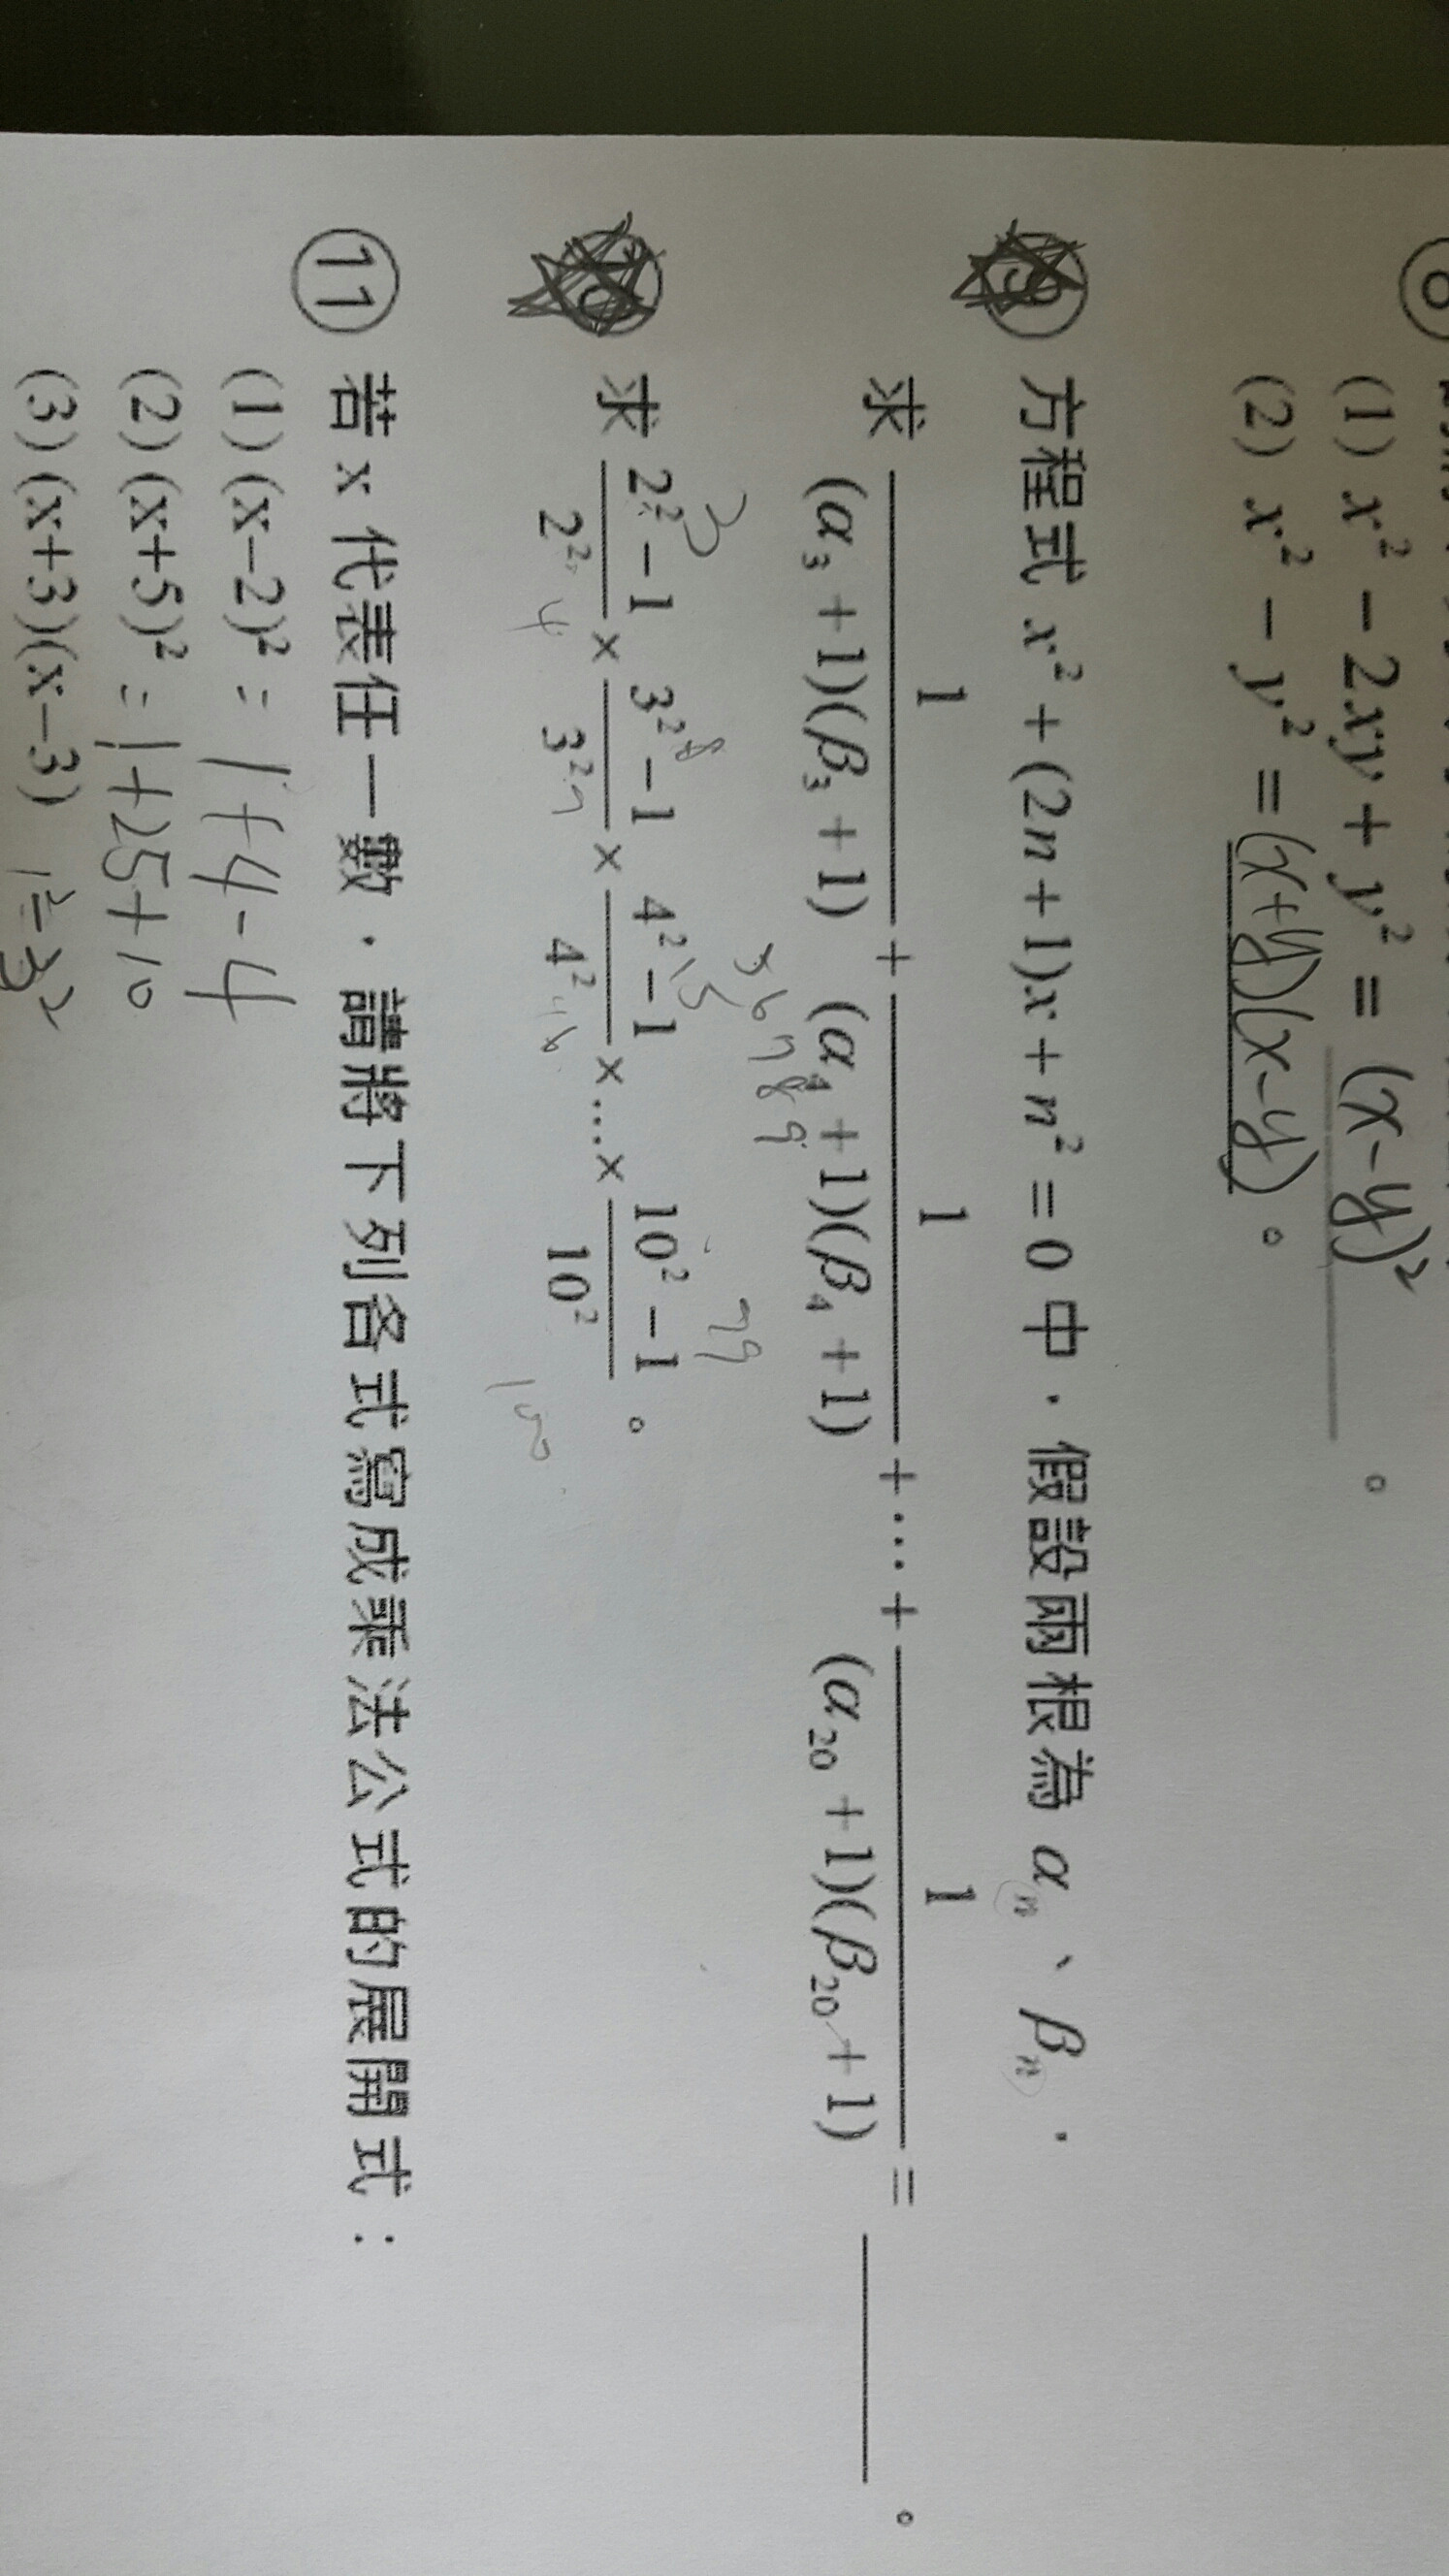 (1) x² − 2xy + y² = (x-y)² 。
(2) x² − y² = (x+y)(x-y) 。
⑨ 方程式 x² + (2n + 1)x + n² = 0 中，假設兩根為 αₙ、βₙ，
求 1/((α₃ + 1)(β₃ + 1)) + 1/((α₄ + 1)(β₄ + 1)) + ⋯ + 1/((α₂₀ + 1)(β₂₀ + 1)) = ______ 。
5 6 7 8 9
3 8 15 99
⑩ 求 (2² − 1)/2² × (3² − 1)/3² × (4² − 1)/4² × … × (10² − 1)/10² 。
4 9 16 100
⑪ 若 x 代表任一數，請將下列各式寫成乘法公式的展開式：
(1) (x−2)² = 1+4-4
(2) (x+5)² = 1+25+10
(3) (x+3)(x−3) 1²=3²